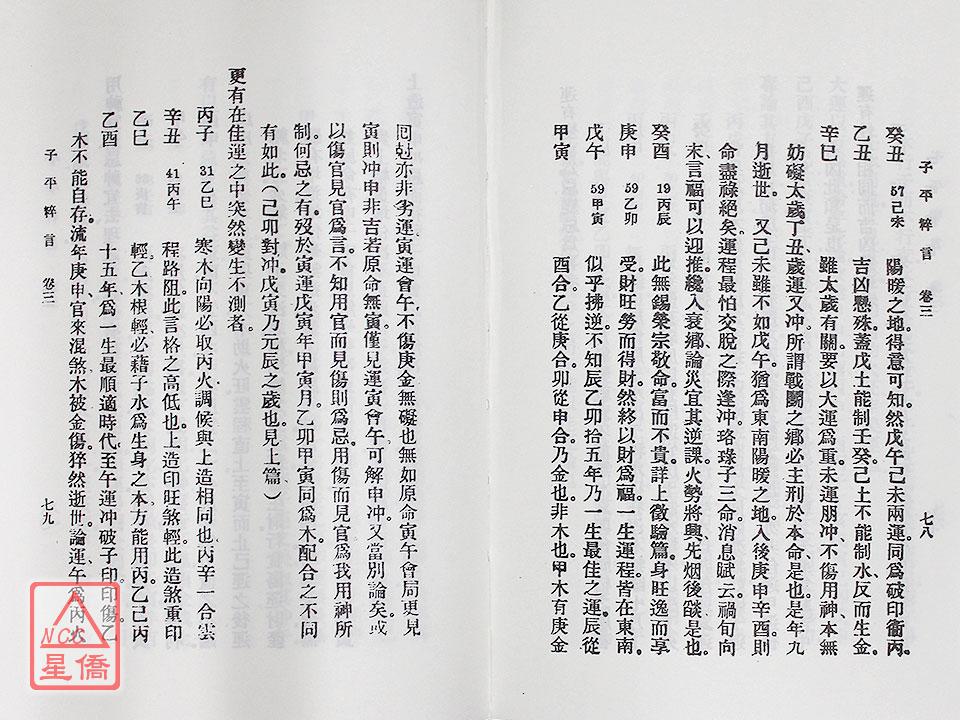 子平粹言　卷三　七八
癸丑　57己未　陽暖之地。得意可知。然戊午己未兩運。同爲破印衞丙。
乙丑　吉凶懸殊。蓋戊土能制壬癸。己土不能制水。反而生金。
辛巳　雖太歲有關。要以大運爲重。未運朋冲。不傷用神。本無
妨礙。太歲丁丑。歲運又冲。所謂戰鬭之鄉。必主刑於本命是也。是年九
月逝世。　又己未雖不如戊午。猶爲東南陽暖之地。入後庚申辛酉。則
命盡祿絕矣。運程最怕交脫之際逢冲。珞琭子三命消息賦云。禍旬向
末。言福可以迎推。纔入衰鄉。論災宜其逆課。火勢將興。先烟後燄是也。
癸酉　19丙辰　此無錫榮宗敬命。富而不貴。詳上徵驗篇。身旺逸而享
庚申　59乙卯　受。財旺勞而得財。然終以財爲福。一生運程。皆在東南。
戊午　59甲寅　似乎拂逆。不知辰乙卯拾五年。乃一生最佳之運。辰從
甲寅　酉合。乙從庚合。卯從申合。乃金也。非木也。甲木有庚金
回尅。亦非劣運。寅運會午。不傷庚金。無礙也。無如原命寅午會局。更見
寅則冲申非吉。若原命無寅。僅見運寅會午。可解申冲。又當別論矣。或
以傷官見官爲言。不知用官而見傷則爲忌。用傷而見官。爲我用神所
制。何忌之有。歿於寅運戊寅年甲寅月。乙卯甲寅。同爲木。配合之不同
有如此。（己卯對冲戊寅。乃元辰之歲也。見上篇）
更有在佳運之中。突然變生不測者。
丙子　31乙巳　寒木向陽。必取丙火調候。與上造相同也。丙辛一合。雲
辛丑　41丙午　程路阻。此言格之高低也。上造印旺煞輕。此造煞重印
乙巳　輕。乙木根輕。必藉子水爲生身之本。方能用丙。乙己丙
乙酉　十五年。爲一生最順適時代。至午運冲破子印。印傷。乙
木不能自存。流年庚申。官來混煞。木被金傷。猝然逝世。論運午爲丙火
子平粹言　卷三　七九
NCC
星僑